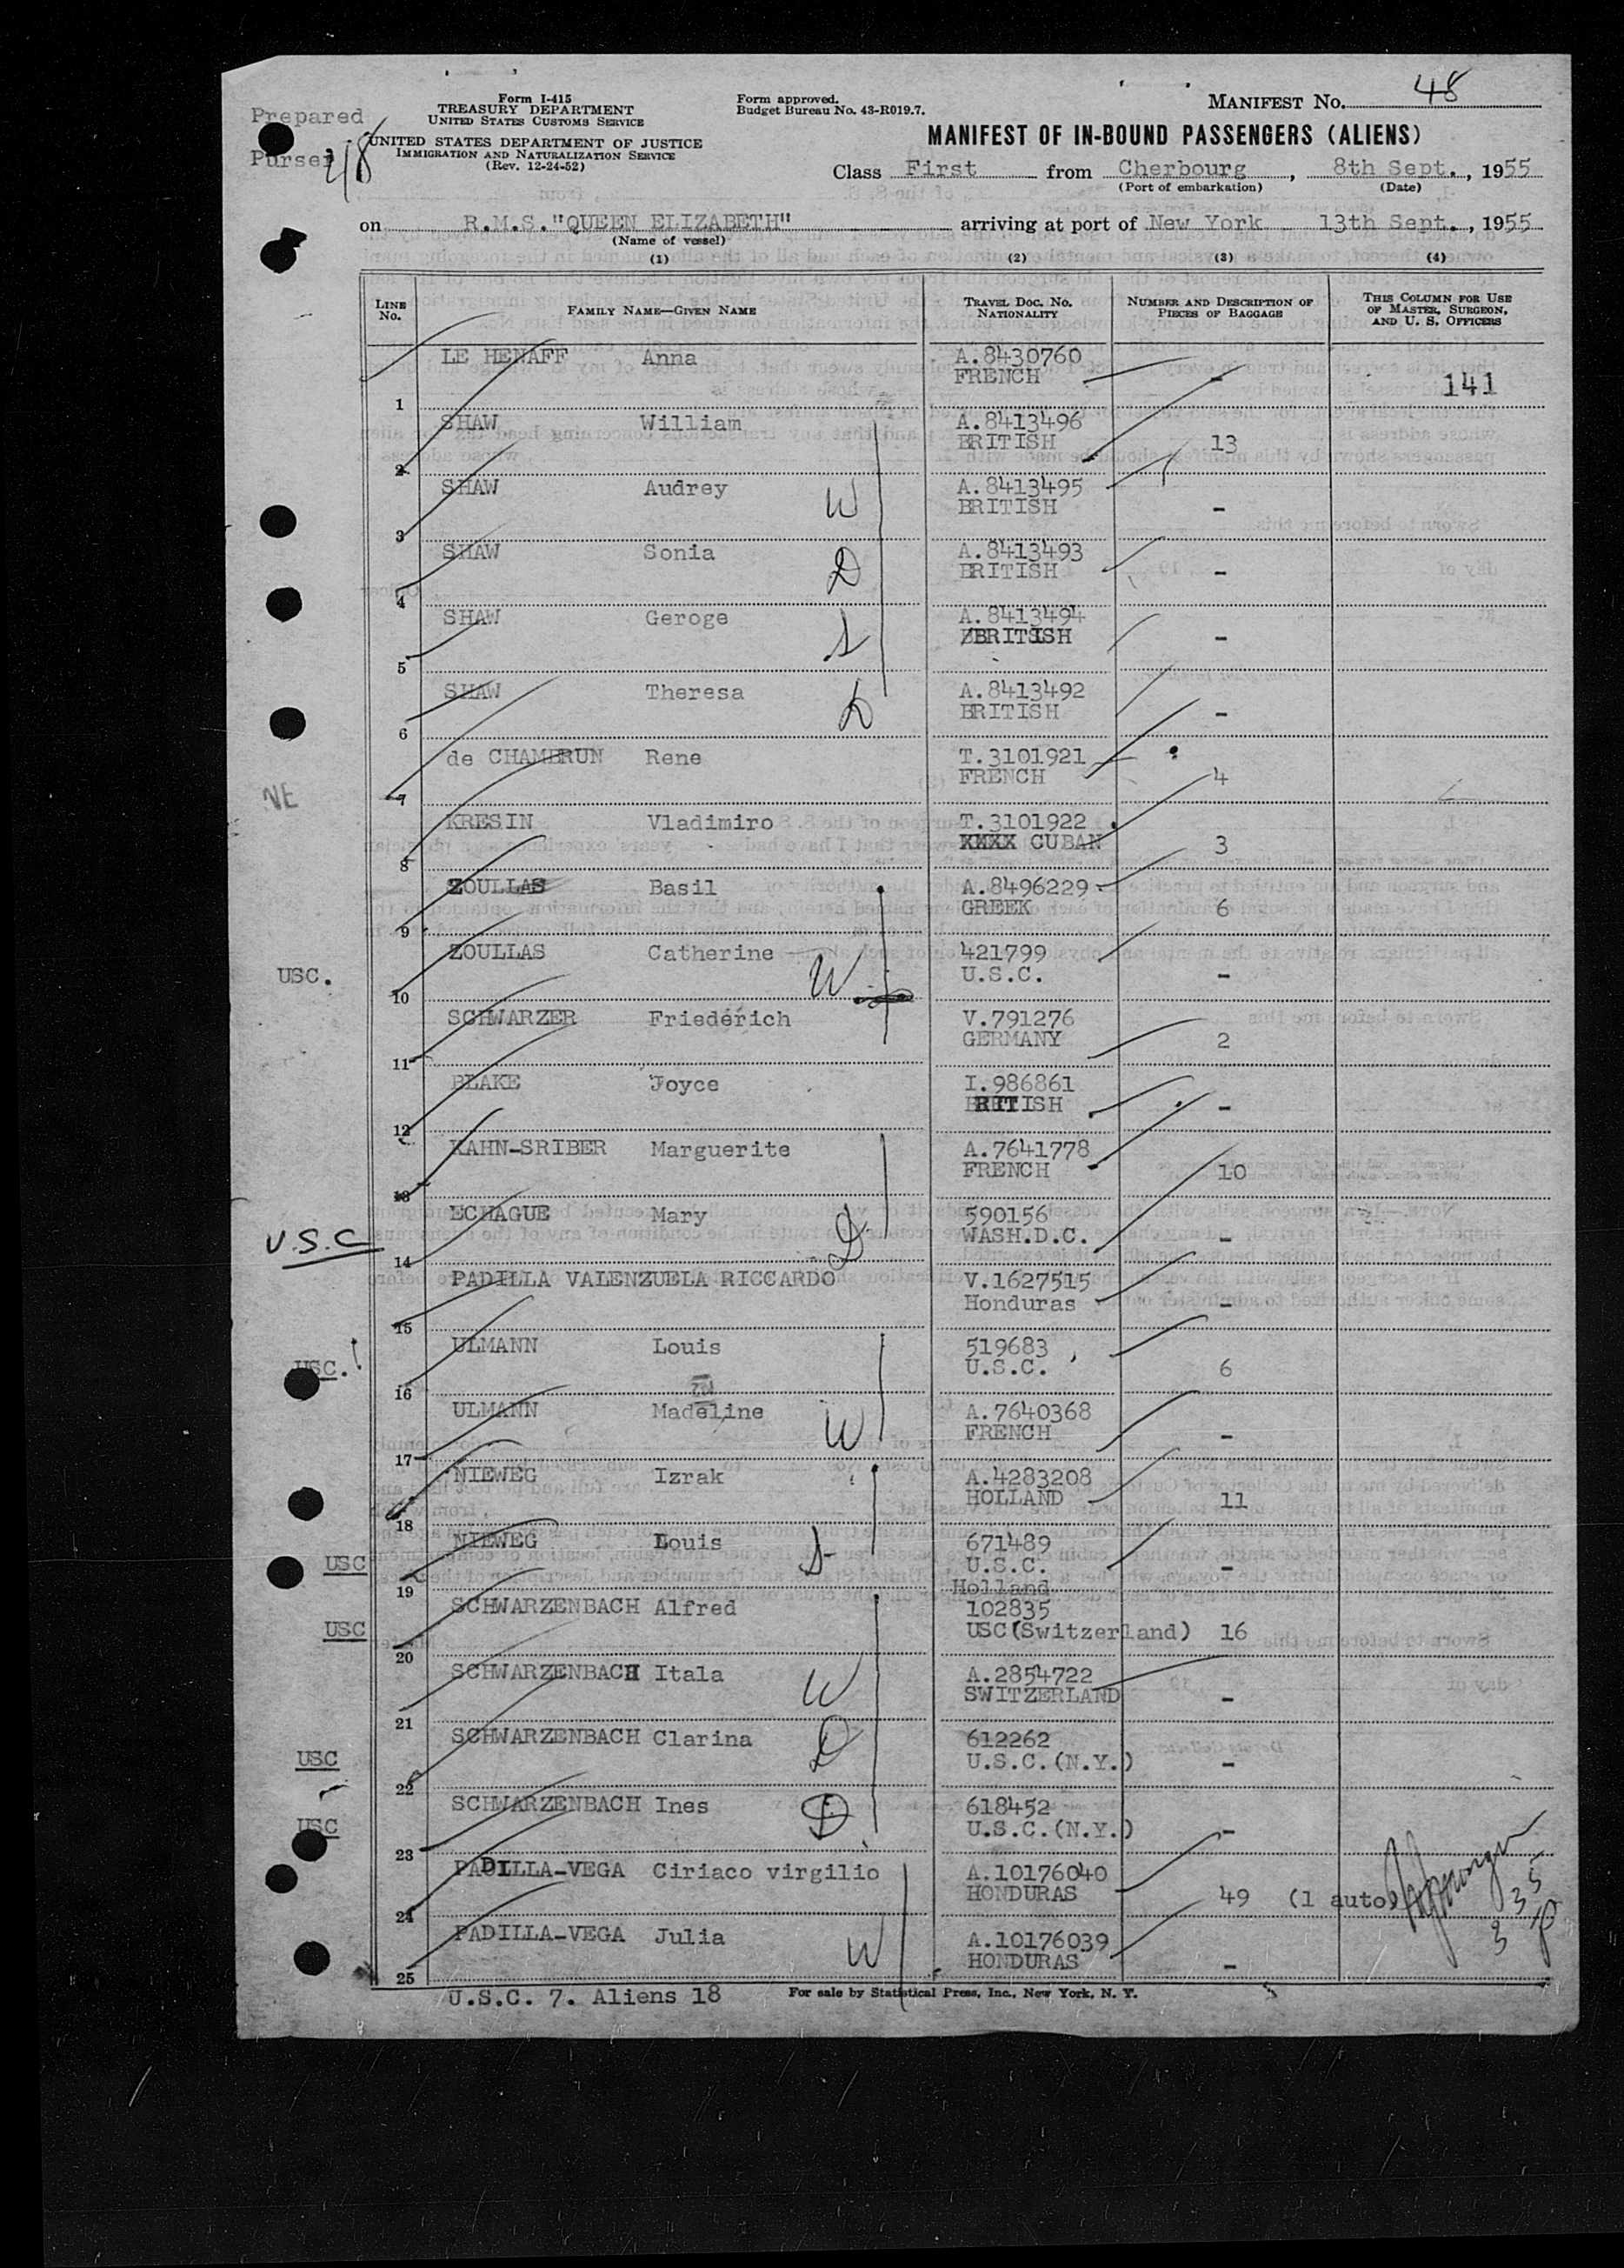 Prepared
Purser
2/8
Form I-415
TREASURY DEPARTMENT
UNITED STATES CUSTOMS SERVICE
UNITED STATES DEPARTMENT OF JUSTICE
IMMIGRATION AND NATURALIZATION SERVICE
(Rev. 12-24-52)
Form approved.
Budget Bureau No. 43-R019.7.
MANIFEST No. 48
MANIFEST OF IN-BOUND PASSENGERS (ALIENS)
Class First from Cherbourg, 8th Sept., 1955
(Port of embarkation) (Date)
on R.M.S."QUEEN ELIZABETH" arriving at port of New York 13th Sept., 1955
(Name of vessel)
(1) (2) (3) (4)
LINE No. FAMILY NAME—GIVEN NAME TRAVEL DOC. NO. NATIONALITY NUMBER AND DESCRIPTION OF PIECES OF BAGGAGE THIS COLUMN FOR USE OF MASTER, SURGEON, AND U. S. OFFICERS
LE HENAFF Anna A.8430760
FRENCH - 141
1
SHAW William A.8413496
BRITISH 13
2
SHAW Audrey W A.8413495
BRITISH -
3
SHAW Sonia D A.8413493
BRITISH -
4
SHAW Geroge S A.8413494
BRITISH -
5
SHAW Theresa D A.8413492
BRITISH -
6
de CHAMBRUN Rene T.3101921
FRENCH 4
NE 7
KRESIN Vladimiro T.3101922
XXXX CUBAN 3
8
ZOULLAS Basil A.8496229
GREEK 6
9
ZOULLAS Catherine W 421799
USC. U.S.C. -
10
SCHWARZER Friedérich V.791276
GERMANY 2
11
BLAKE Joyce I.986861
BRITISH -
12
KAHN-SRIBER Marguerite A.7641778
FRENCH 10
13
ECHAGUE Mary D 590156
U.S.C WASH.D.C. -
14
PADILLA VALENZUELA RICCARDO V.1627515
Honduras -
15
ULMANN Louis 519683
USC. U.S.C. 6
16
ULMANN Madeline W A.7640368
FRENCH -
17
NIEWEG Izrak A.4283208
HOLLAND 11
18
NIEWEG Louis S 671489
USC U.S.C. -
19 Holland
SCHWARZENBACH Alfred 102835
USC USC(Switzerland) 16
20
SCHWARZENBACH Itala W A.2854722
SWITZERLAND -
21
SCHWARZENBACH Clarina D 612262
USC U.S.C.(N.Y.) -
22
SCHWARZENBACH Ines D 618452
USC U.S.C.(N.Y.) -
23
PADILLA-VEGA Ciriaco virgilio A.10176040
HONDURAS 49 (1 auto)
24
PADILLA-VEGA Julia W A.10176039
HONDURAS -
25
U.S.C. 7. Aliens 18 For sale by Statistical Press, Inc., New York, N. Y.